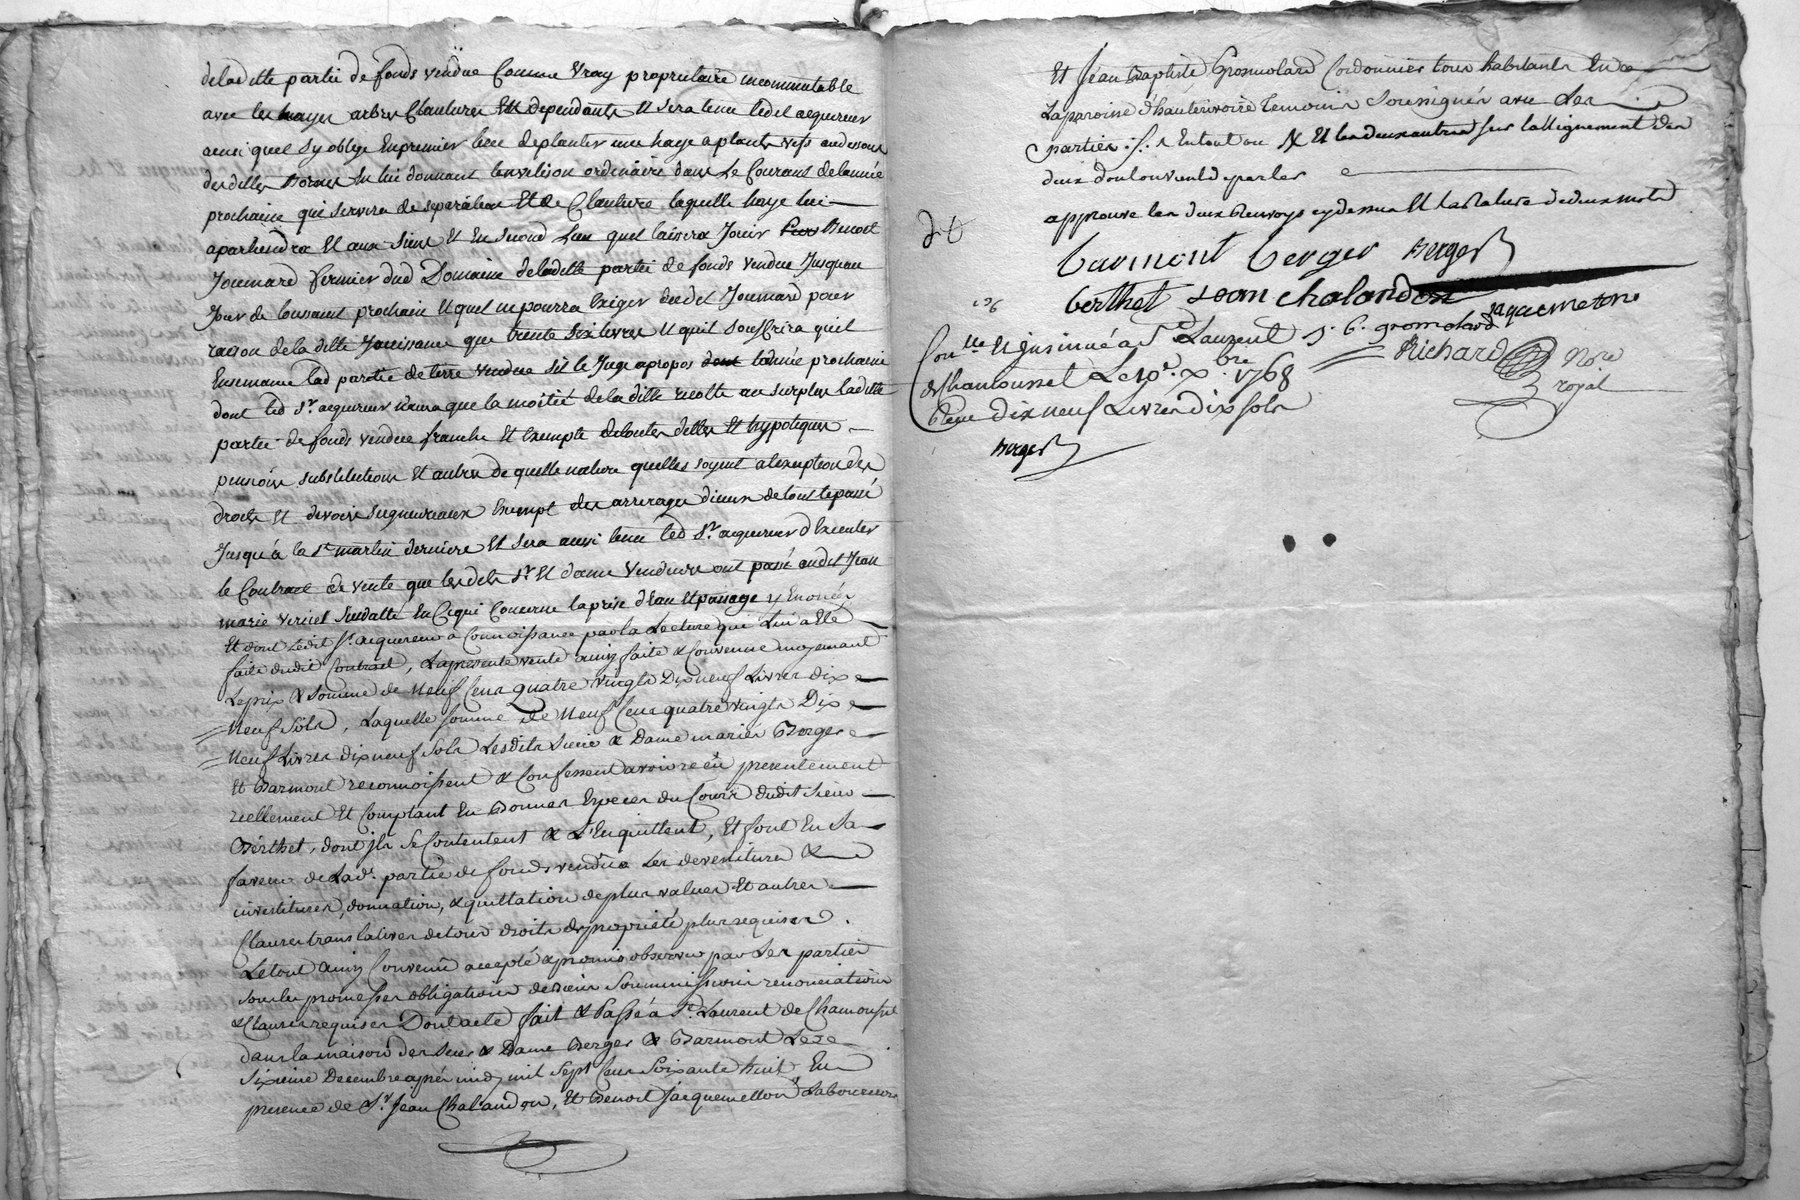 de laditte partie de fonds vendüe Comme vray proprietaire incommutable
avec les hayes arbres Clautures En dependants Et sera tenu ledit acquereur
ainsi quil sy oblige En premier lieu de planter une haye a plants vifs au dessous
desdittes Bornes En lui donnant lenvelison ordinaire dans Le Courant de lannée
prochaine qui servira de separation Et de Clauture laquelle haye lui
apartiendra Et aux siens Et En second Lieu quil laissera Jouir Benoit
Joumard fermier dud Domaine de laditte partie de fonds vendue Jusquau
Jour de toussaint prochain Et quil ne pourra Exiger dudit Joumard pour
raison de la ditte Jouissance que trente six livres Et quil souffrira quil
Ensemance lad partie de terre vendue sil le Juge apropos lannée prochaine
dont led Sr. acquereur naura que la moitié de la ditte recolte au surplus laditte
partie de fonds vendue franche Et Exempte de toutes dettes Et hypoteques
pensions substitutions Et autres de quelle nature quelles soyent a lexeption des
droits Et devoirs seigneuriaux Exempt des arrerages diceux de tout le passé
Jusqu'à la St. martin derniere Et sera aussi tenu led Sr. acquereur d'Executer
le Contract de vente que lesdits Sr. Et dame vendeurs ont passé audit Jean
marie vericel Susdatté En Ce qui Concerne la prise d'Eau Et passage y Enoncés
Et dont Ledit Sr. acquereur a Connoissance par la Lecture qui Lui a Eté
faite dudit Contract, La presente vente ainsy faite & Convenue moyenant
Le prix & Somme de Neuf Cens quatre vingts Dix neuf Livres dix
Neuf Sols, Laquelle somme de Neuf Cens quatre vingts Dix
Neuf Livres dix neuf sols Lesdits Sieur & Dame mariés Berger
Et Barmont reconnoissent & Confessent avoir reçu presentement
reellement Et Comptant En Bonnes Especes du Cours dudit sieur
Berthet, dont ils se Contentent & L'En quittent, Et font En Sa
faveur de Lad. partie de fonds vendüe Les devestitures &
investitures, donnation, & quittation de plus values Et autres
Clauses translatives de tous droits de propriété plus requises.
Le tout ainsy Convenu accepté & promis observer par Les parties
sous les promesses obligations de biens soummissions renonciations
& Clauses requises Dont acte fait & Passé à St. Laurent de Chamousset
dans la maison des Sieur & Dame Berger & Barmont Le
Sixieme Decembre après midy mil Sept Cens Soixante huit En
presence de Sr. Jean Chalandon, Et Benoit Jacquemetton Laboureurs
Et Jean Baptiste Gromolard Cordonnier tous habitants En
La paroisse d'hauterivoire temoins Soussignés avec Les
parties Et les deux autres sur lallignement des
deux dont on vient de parler
approuve les deux Renvoys cy dessus Et la Rature de deux mots
barmont berger Berger
berthet Jean Chalandon Jaquemeton
J. B. gromolard
Richard Nore
royal
Conlle Et insinué a St. Laurent
de Chamousset Le xbre. 1768
Reçu Dix neuf Livres dix sols
Berger